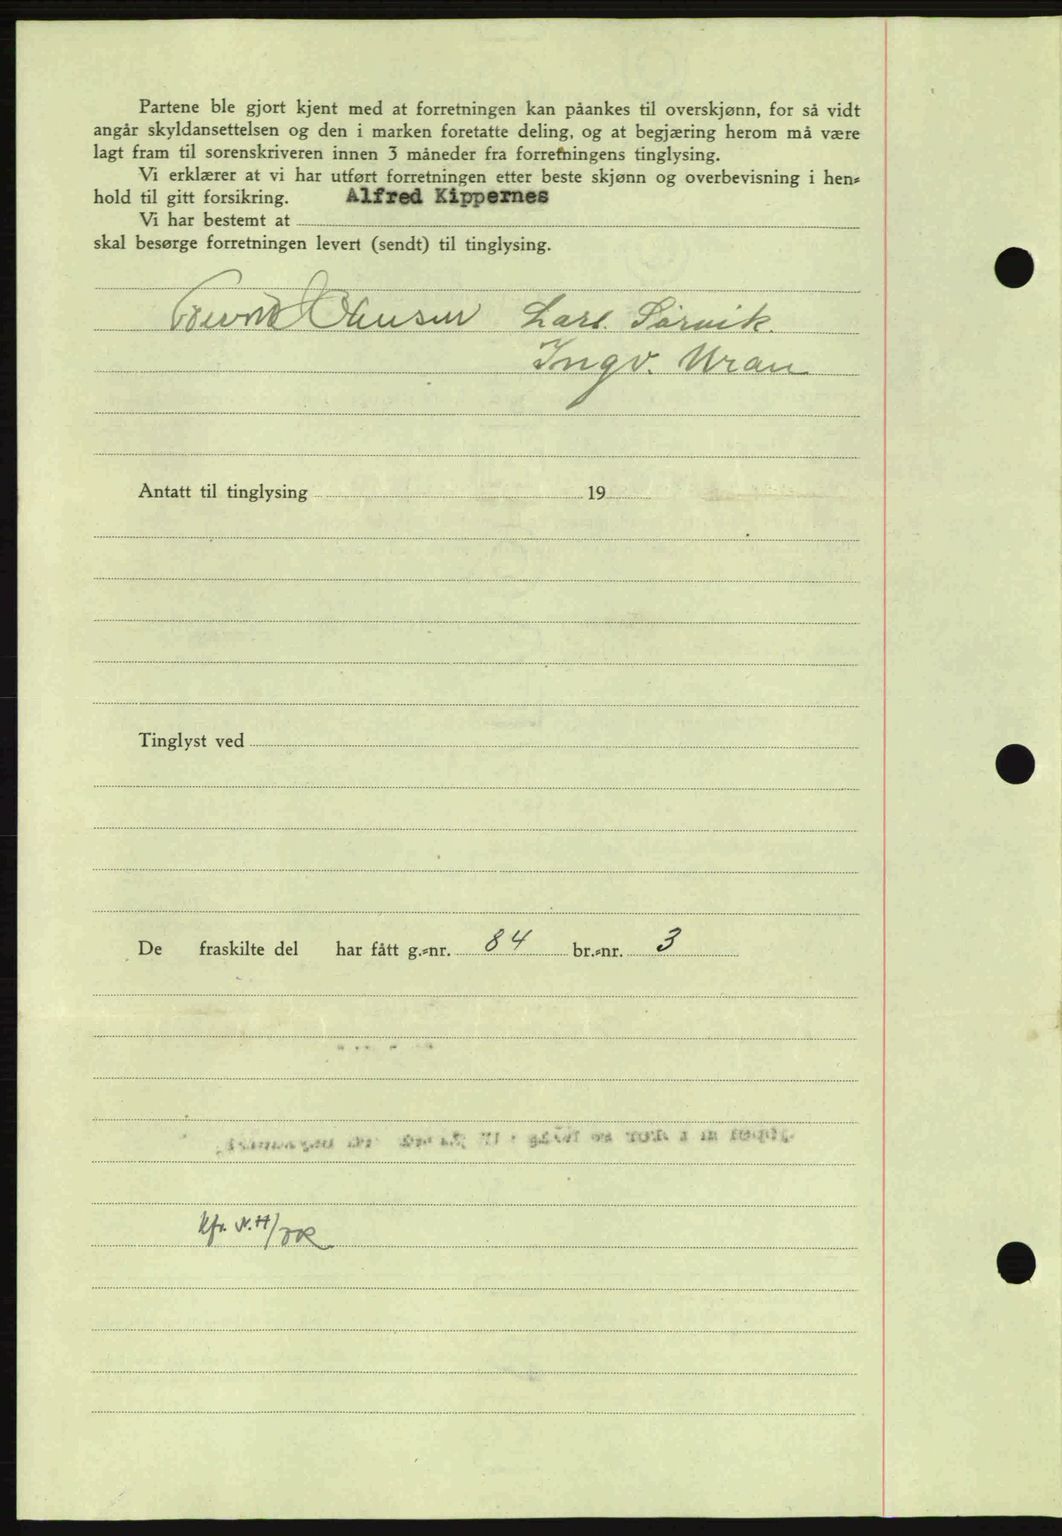 Partene ble gjort kjent med at forretningen kan påankes til overskjønn, for så vidt
angår skyldansettelsen og den i marken foretatte deling, og at begjæring herom må være
lagt fram til sorenskriveren innen 3 måneder fra forretningens tinglysing.
Vi erklærer at vi har utført forretningen etter beste skjønn og overbevisning i hen=
hold til gitt forsikring. Alfred Kippernes
Vi har bestemt at
skal besørge forretningen levert (sendt) til tinglysing.
Lars. Sørvik.
Ingv. Uran
Antatt til tinglysing 19
Tinglyst ved
De fraskilte del har fått g.=nr. 84 br.=nr. 3